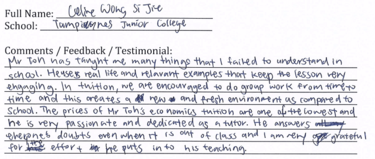 Full Name: Celine Wong Si Jie
School: Tampines Junior College
Comments / Feedback / Testimonial:
Mr Toh has taught me many things that I failed to understand in
school. He uses real life and relavant examples that keep the lesson very
engaging. In tuition, we are encouraged to do group work from time to
time and this creates a new and fresh environment as compared to
school. The prices of Mr Toh's economics tuition are one of the lowest and
he is very passionate and dedicated as a tutor. He answers
doubts even when it is out of class and I am very grateful
for effort he puts in to his teaching.